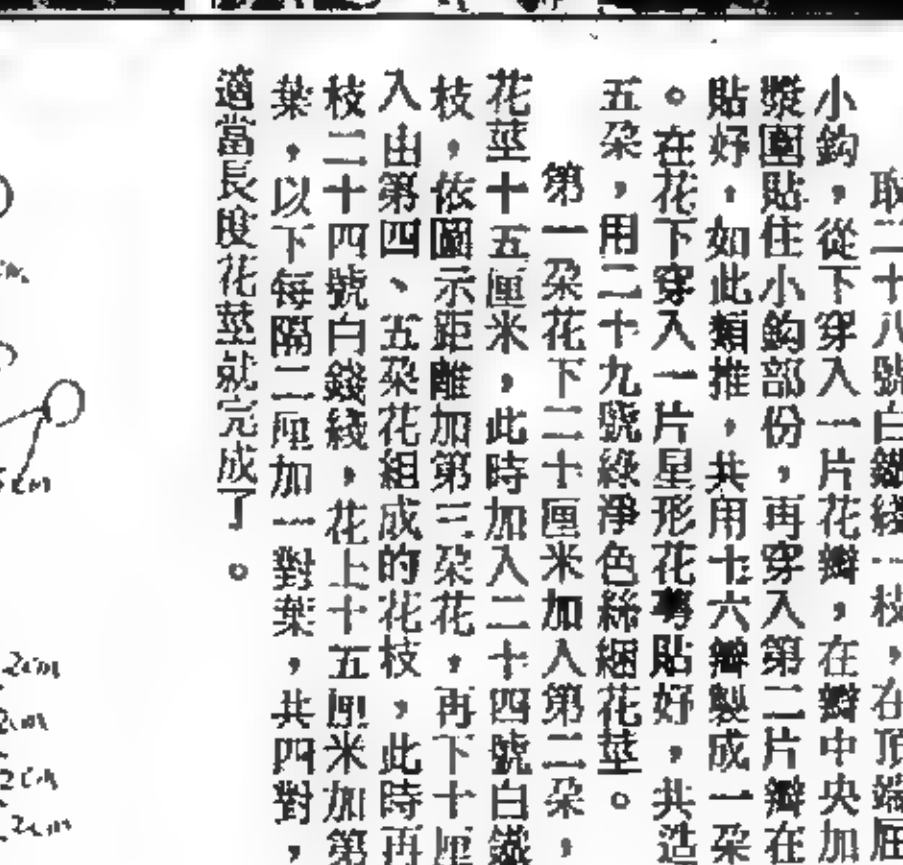 取二十八號白鐵綫一枝，在頂端屈
小鈎，從下穿入一片花瓣，在瓣中央加
漿圍貼住小鈎部份，再穿入第二片瓣在
貼好，如此類推，共用十六瓣製成一朶
。在花下穿入一片星形花萼貼好，共造
五朶，用二十九號綠淨色絲綑花莖。
第一朶花下二十厘米加入第二朶，
花莖十五厘米，此時加入二十四號白鐵
枝，依圖示距離加第三朶花，再下十厘
入由第四、五朶花組成的花枝，此時再
枝二十四號白錢綫，花上十五厘米加第
葉，以下每隔二厘加一對葉，共四對，
適當長度花莖就完成了。
cm
2cm
2cm
2cm
2cm